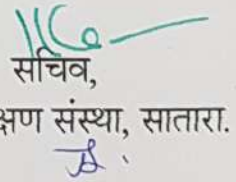 सचिव,
क्षण संस्था, सातारा.